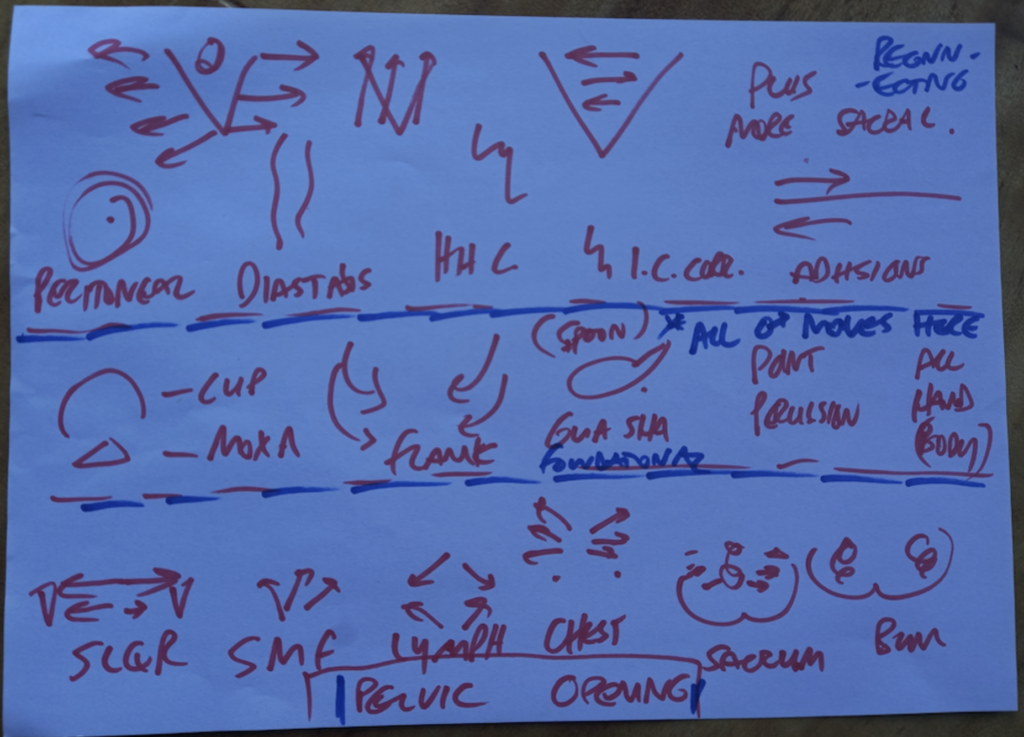 PLUS
MORE SACRAL.
PERITONEAL
DIASTASIS
HHC
I.C. CORR.
ADHSIONS
(SPOON)
* ALL ♂ MOVES HERE
— CUP
— MOXA
FLAME
GUA SHA
FOUNDATIONAL
POINT
PERCUSION
ALL
HAND
(BODY)
SMF
LYMPH
CHEST
SACRUM
BUM
PELVIC OPENING